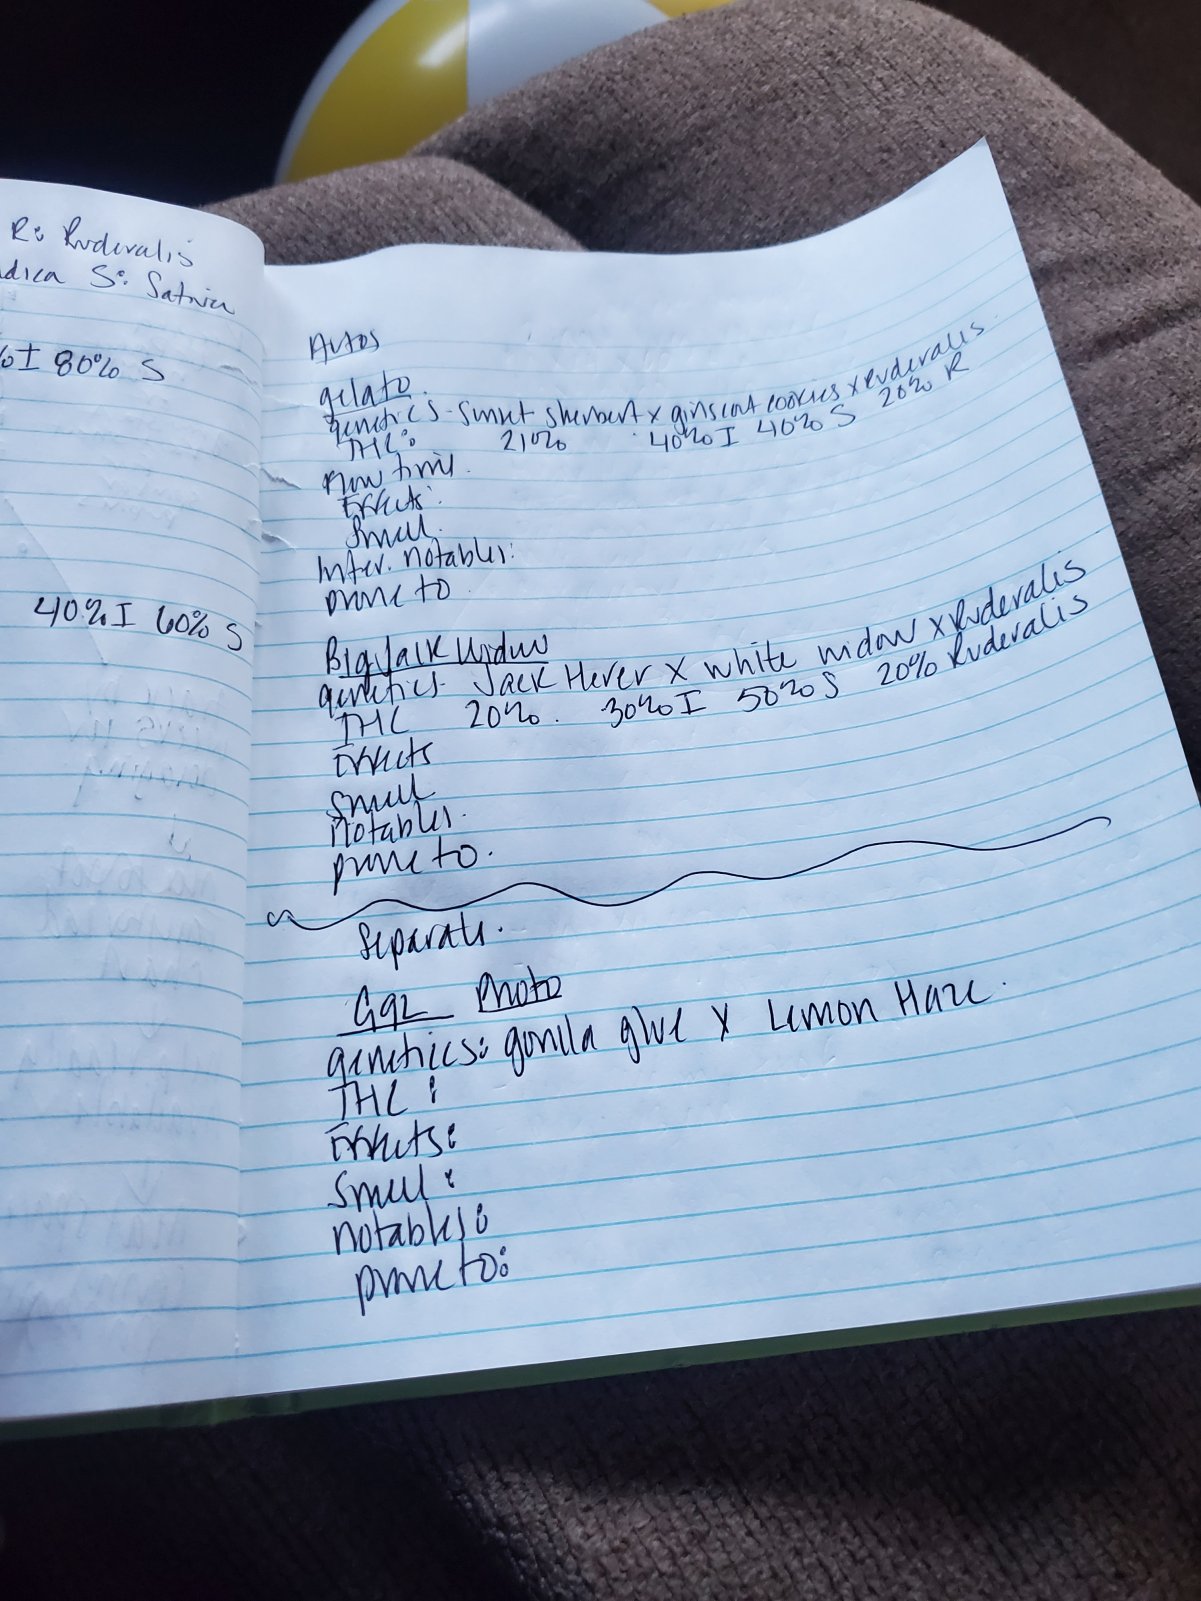 R: Ruderalis
dica S: Sativa
%I 80% S
40%I 60% S
Autos
gelato.
genetics- Sunset sherbert x girlscout cookies x Ruderalis.
THC: 21% 40%I 40% S 20% R
Flow time.
Effects:
Smell.
Inter. notables:
prone to.
Big Jack Widow
genetics- Jack Herer x white widow x Ruderalis
THC 20%. 30% I 50% S 20% Ruderalis
Effects
Smell
Notables.
prone to.
Separate.
Photo
genetics: gorilla glue x Lemon Haze.
THC:
Effects:
Smell:
notables:
prone to: